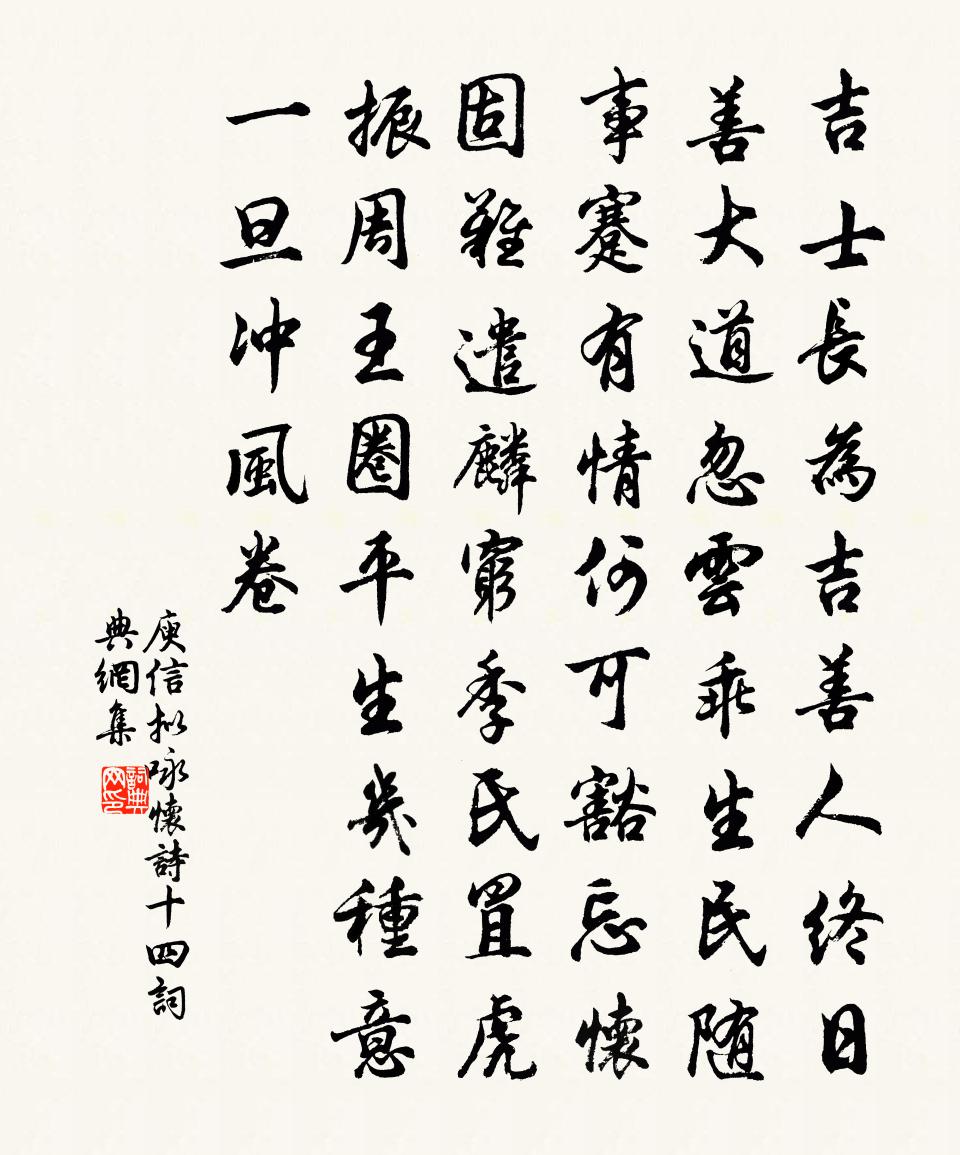 吉士長為吉善人終日
善大道忽雲乖生民随
事蹇有情何可豁忘懷
固難遣麟窮季氏罝虎
振周王圈平生幾種意
一旦冲風卷
庾信拟咏懷詩十四詞
典網集
詞典
网印